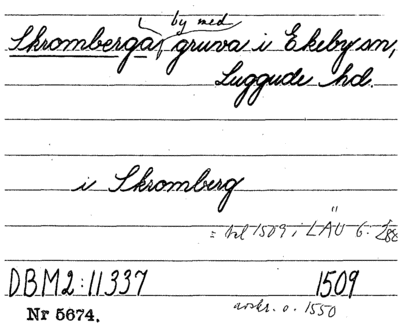 by med
Skromberga, gruva i Ekeby sn,
Luggude hd.
i Skromberg
= tal 1509 i LAU 6. 288
DBM2:11337 1509
avskr. o. 1550
Nr 5674.